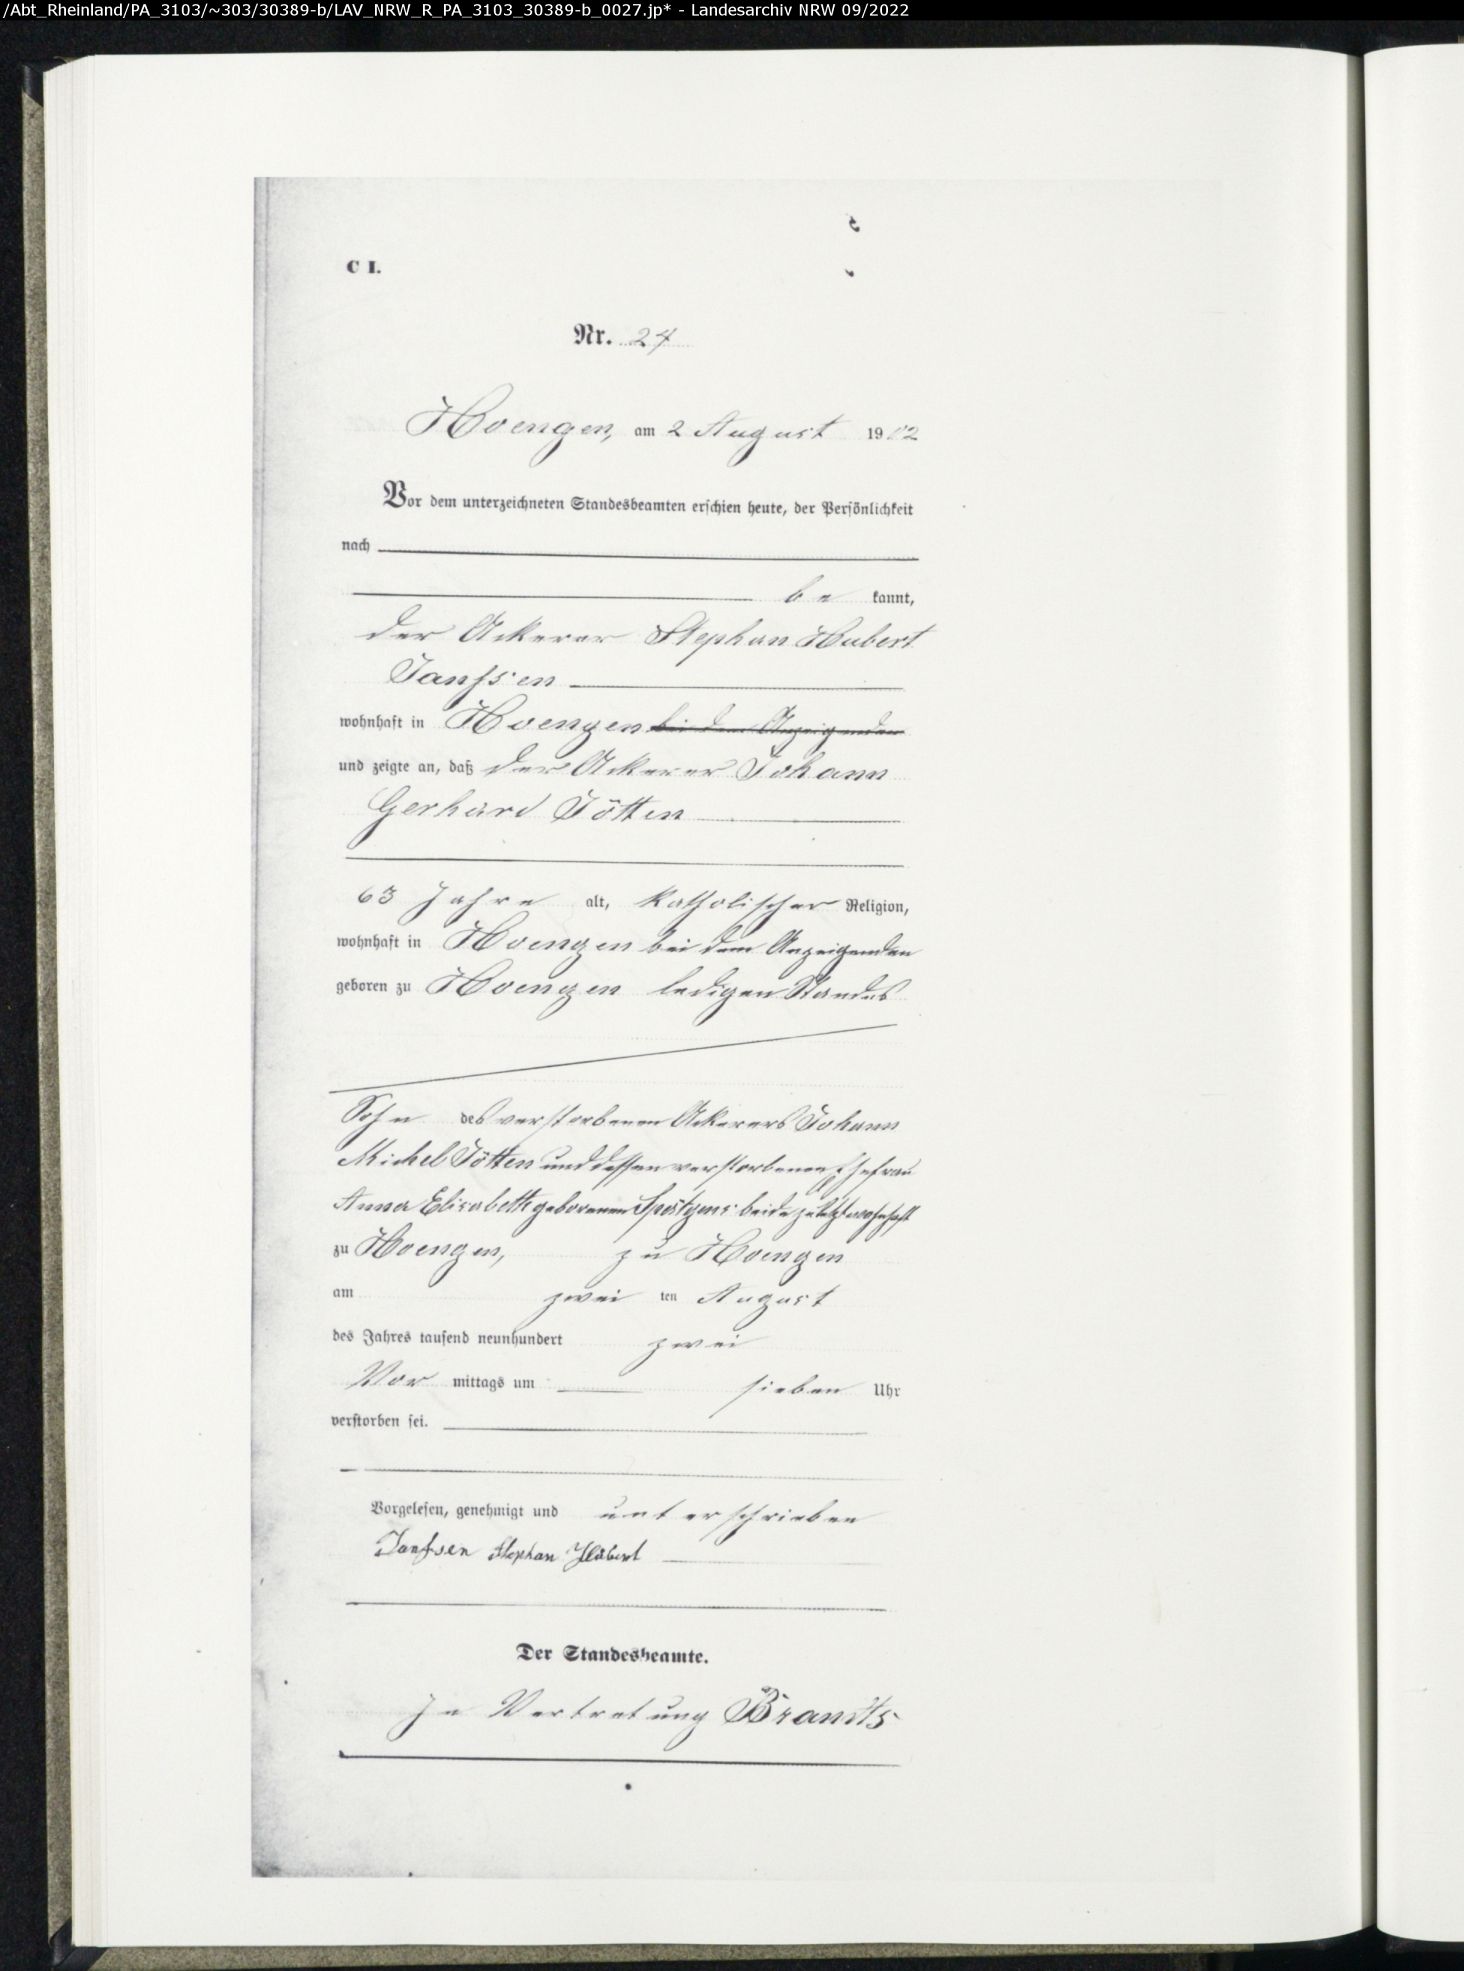 /Abt_Rheinland/PA_3103/~303/30389-b/LAV_NRW_R_PA_3103_30389-b_0027.jp* - Landesarchiv NRW 09/2022
C I.
Nr. 24
Hoengen, am 2 August 1902
Vor dem unterzeichneten Standesbeamten erschien heute, der Persönlichkeit
nach
be kannt,
der Ackerer Stephan Hubert
Janssen
wohnhaft in Hoengen bei dem Anzeigenden
und zeigte an, daß der Ackerer Johann
Gerhard Jötten
63 Jahre alt, katholischer Religion,
wohnhaft in Hoengen bei dem Anzeigenden
geboren zu Hoengen ledigen Standes
Sohn des verstorbenen Ackerers Johann
Michel Jötten und dessen verstorbenen Ehefrau
Anna Elisabeth geborenen Spätgens beide zuletzt wohnhaft
zu Hoengen, zu Hoengen
am zwei ten August
des Jahres tausend neunhundert zwei
Vor mittags um sieben Uhr
verstorben sei.
Vorgelesen, genehmigt und unterschrieben
Janssen Stephan Hubert
Der Standesbeamte.
In Vertretung Brandts